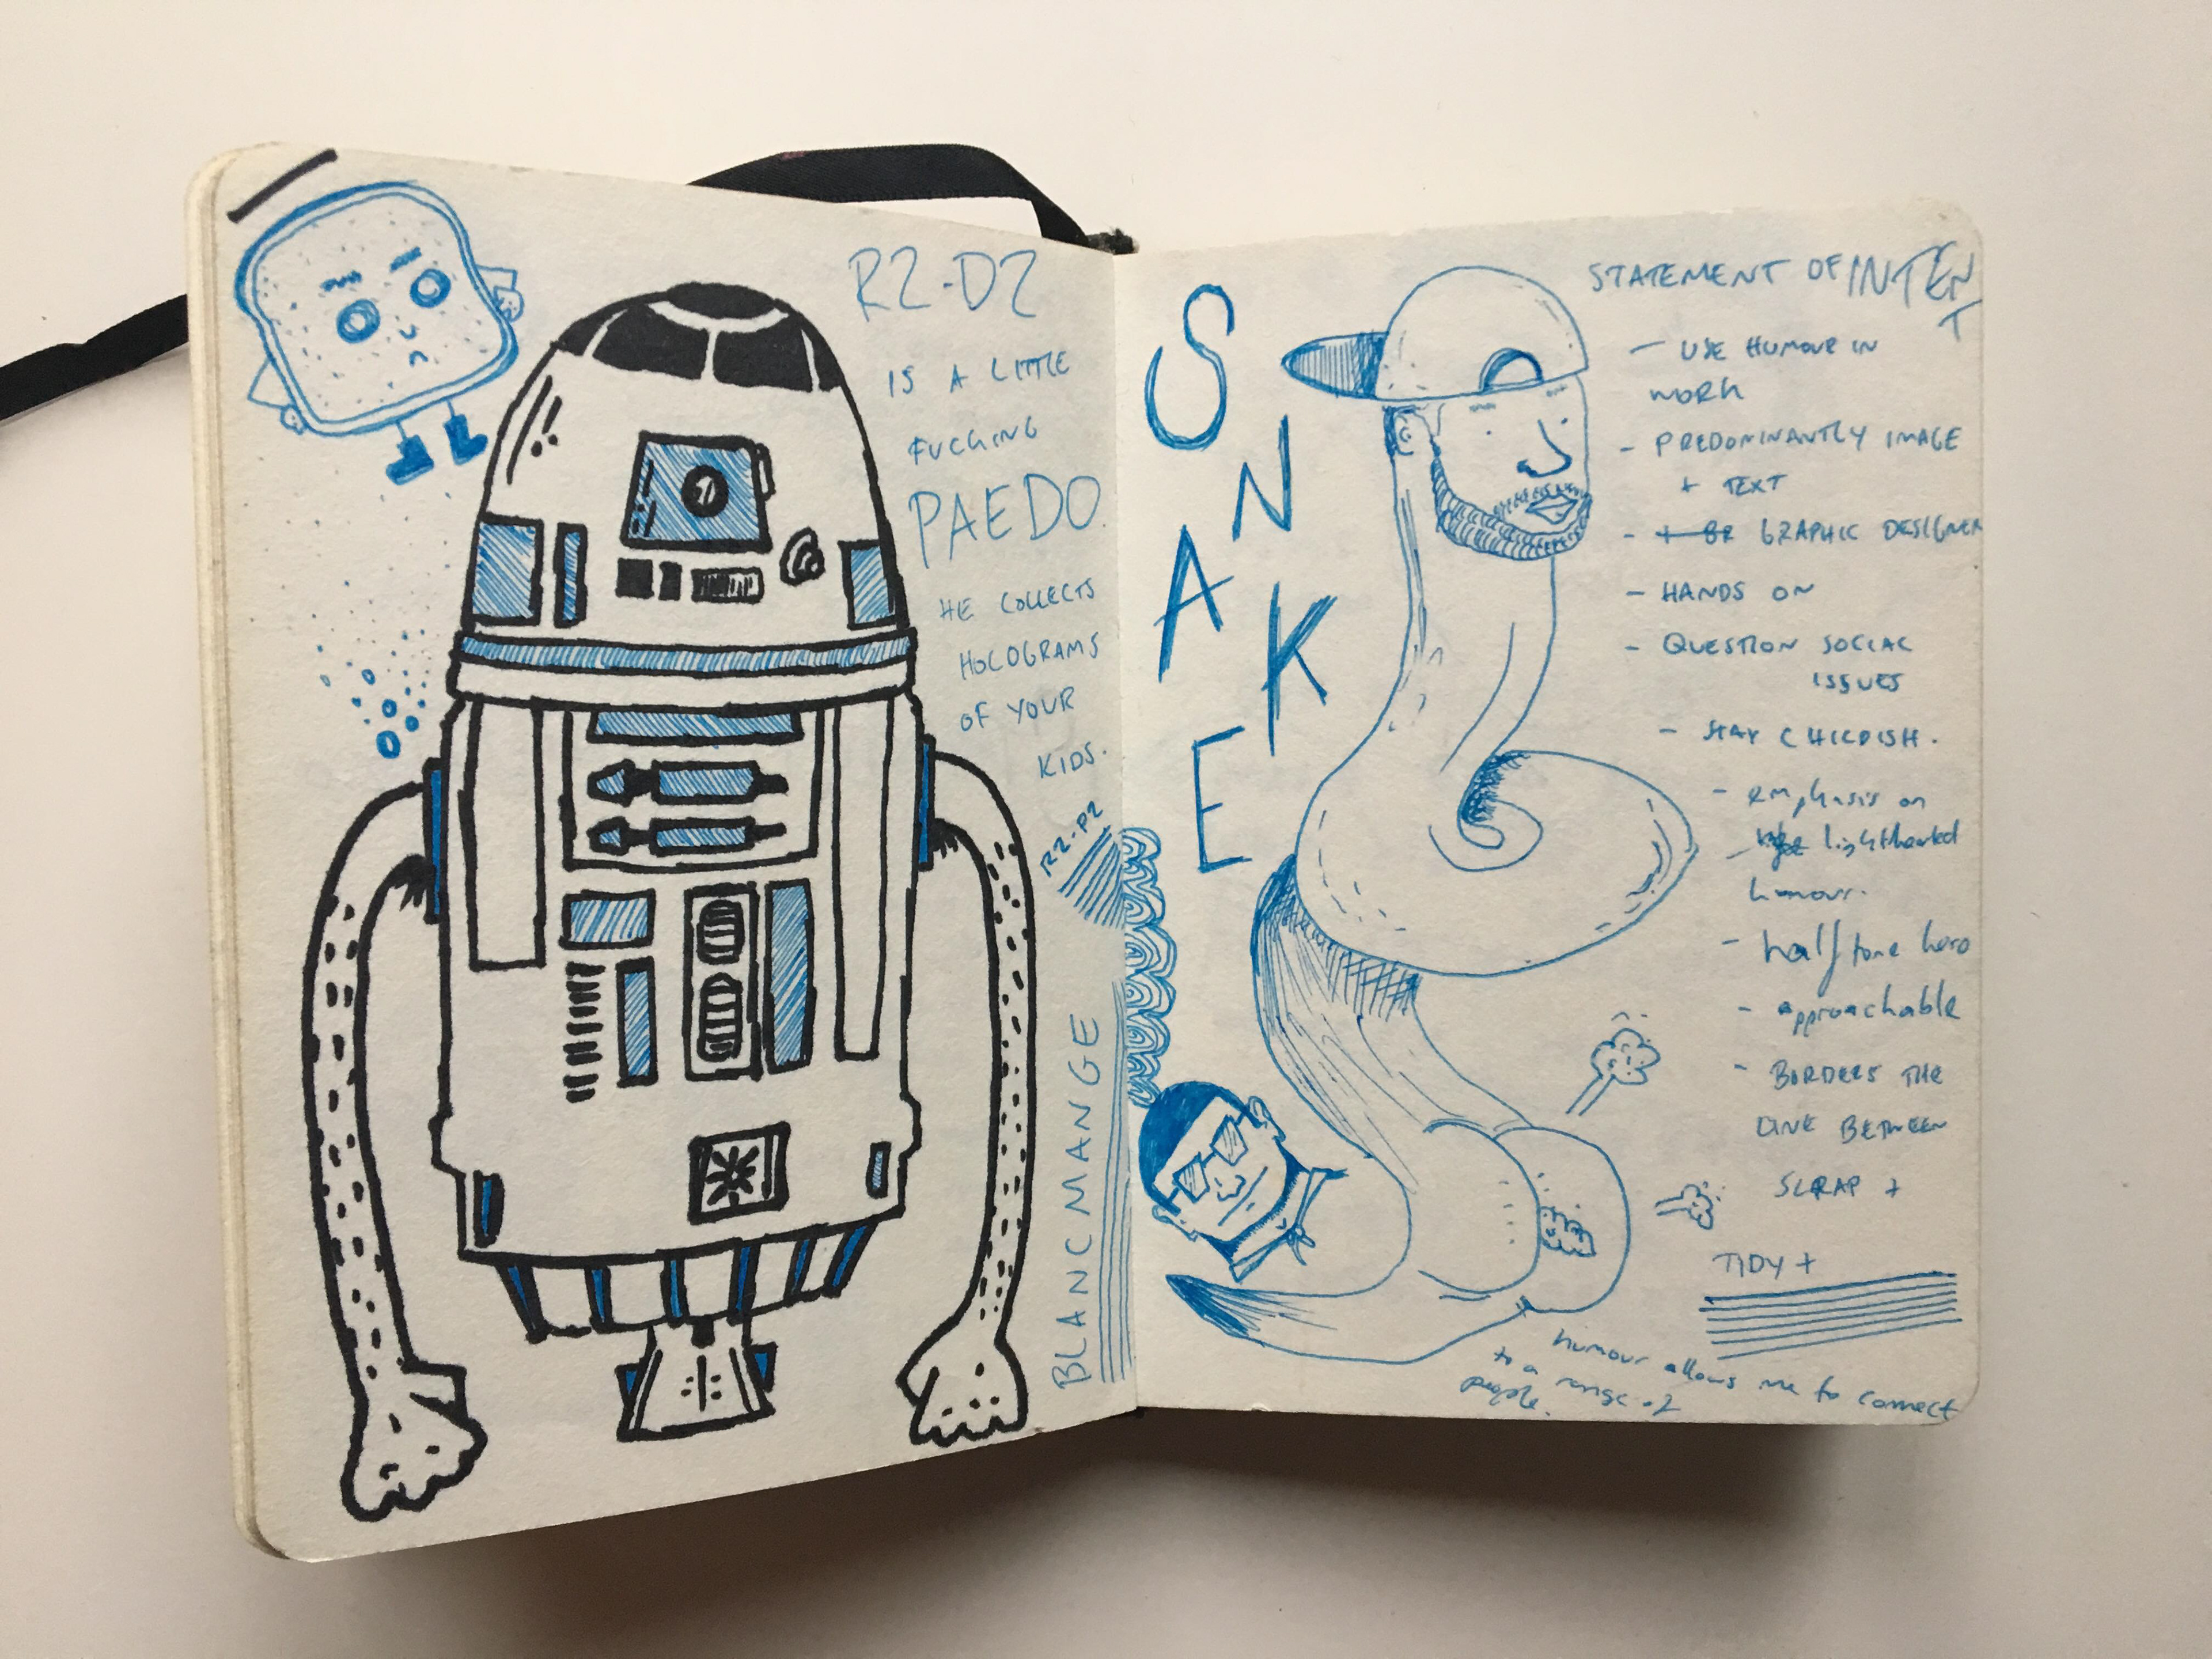 R2-D2
IS A LITTLE
FUCKING
PAEDO.
HE COLLECTS
HOLOGRAMS
OF YOUR
KIDS.
R2-P2
BLANCMANGE
SNAKE
STATEMENT OF INTENT
- USE HUMOUR IN
WORK
- PREDOMINANTLY IMAGE
+ TEXT
- GRAPHIC DESIGNER
- HANDS ON
- QUESTION SOCIAL
ISSUES
- STAY CHILDISH.
- emphasis on
lighthearted
humour.
- halftone hero
- approachable
- BORDERS THE
LINE BETWEEN
SCRAP +
TIDY +
humour allows me to connect
to a range of
people.